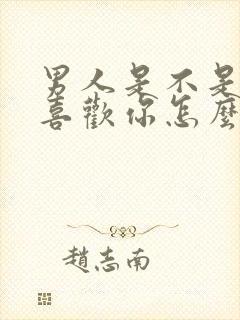 男人是不是
喜歡你怎麼
趙志南